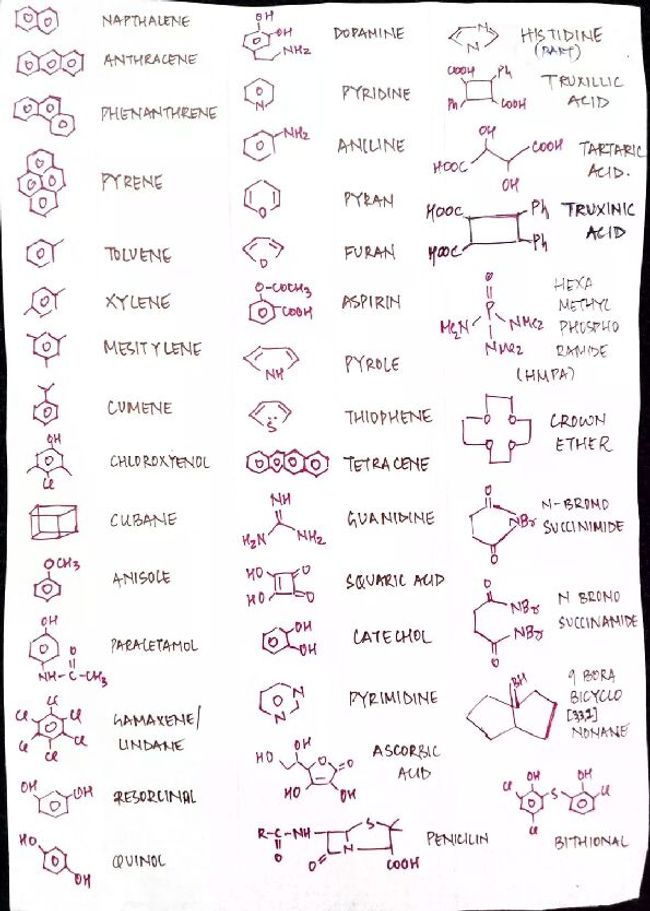 NAPTHALENE
ANTHRACENE
PHENANTHRENE
PYRENE
TOLUENE
XYLENE
MESITYLENE
CUMENE
OH
CHLOROXYENOL
Cl
CUBANE
OCH3
ANISOLE
OH
PARACETAMOL
O
NH-C-CH3
Cl
Cl Cl
GAMAXENE/
LINDANE
Cl Cl
Cl
OH OH
RESORCINAL
HO
QUINOL
OH
OH
OH
DOPAMINE
NH2
PYRIDINE
N
NH2
ANILINE
PYRAN
O
FURAN
O
O-COCH3
ASPIRIN
COOH
PYROLE
NH
THIOPHENE
S
TETRACENE
NH
GUANIDINE
H2N NH2
HO O
SQUARIC ACID
HO O
OH
CATECHOL
OH
N
PYRIMIDINE
N
HO OH
O O
ASCORBIC
ACID
HO OH
R-C-NH S
PENICILIN
O N
O COOH
N
HISTIDINE
(PART)
N
COOH Ph
TRUXILLIC
ACID
Ph COOH
OH
COOH
TARTARIC
ACID.
HOOC
OH
HOOC Ph
TRUXINIC
ACID
HOOC Ph
O
HEXA
METHYL
P
PHOSPHO
Me2N NMe2
RAMIDE
NMe2
(HMPA)
O O
CROWN
ETHER
O O
O
N-BROMO
NBr
SUCCINIMIDE
O
O
N BROMO
NBr
SUCCINAMIDE
NBr
O
BH
9 BORA
BICYCLO
[331]
NONANE
OH OH
Cl S Cl
Cl
BITHIONAL